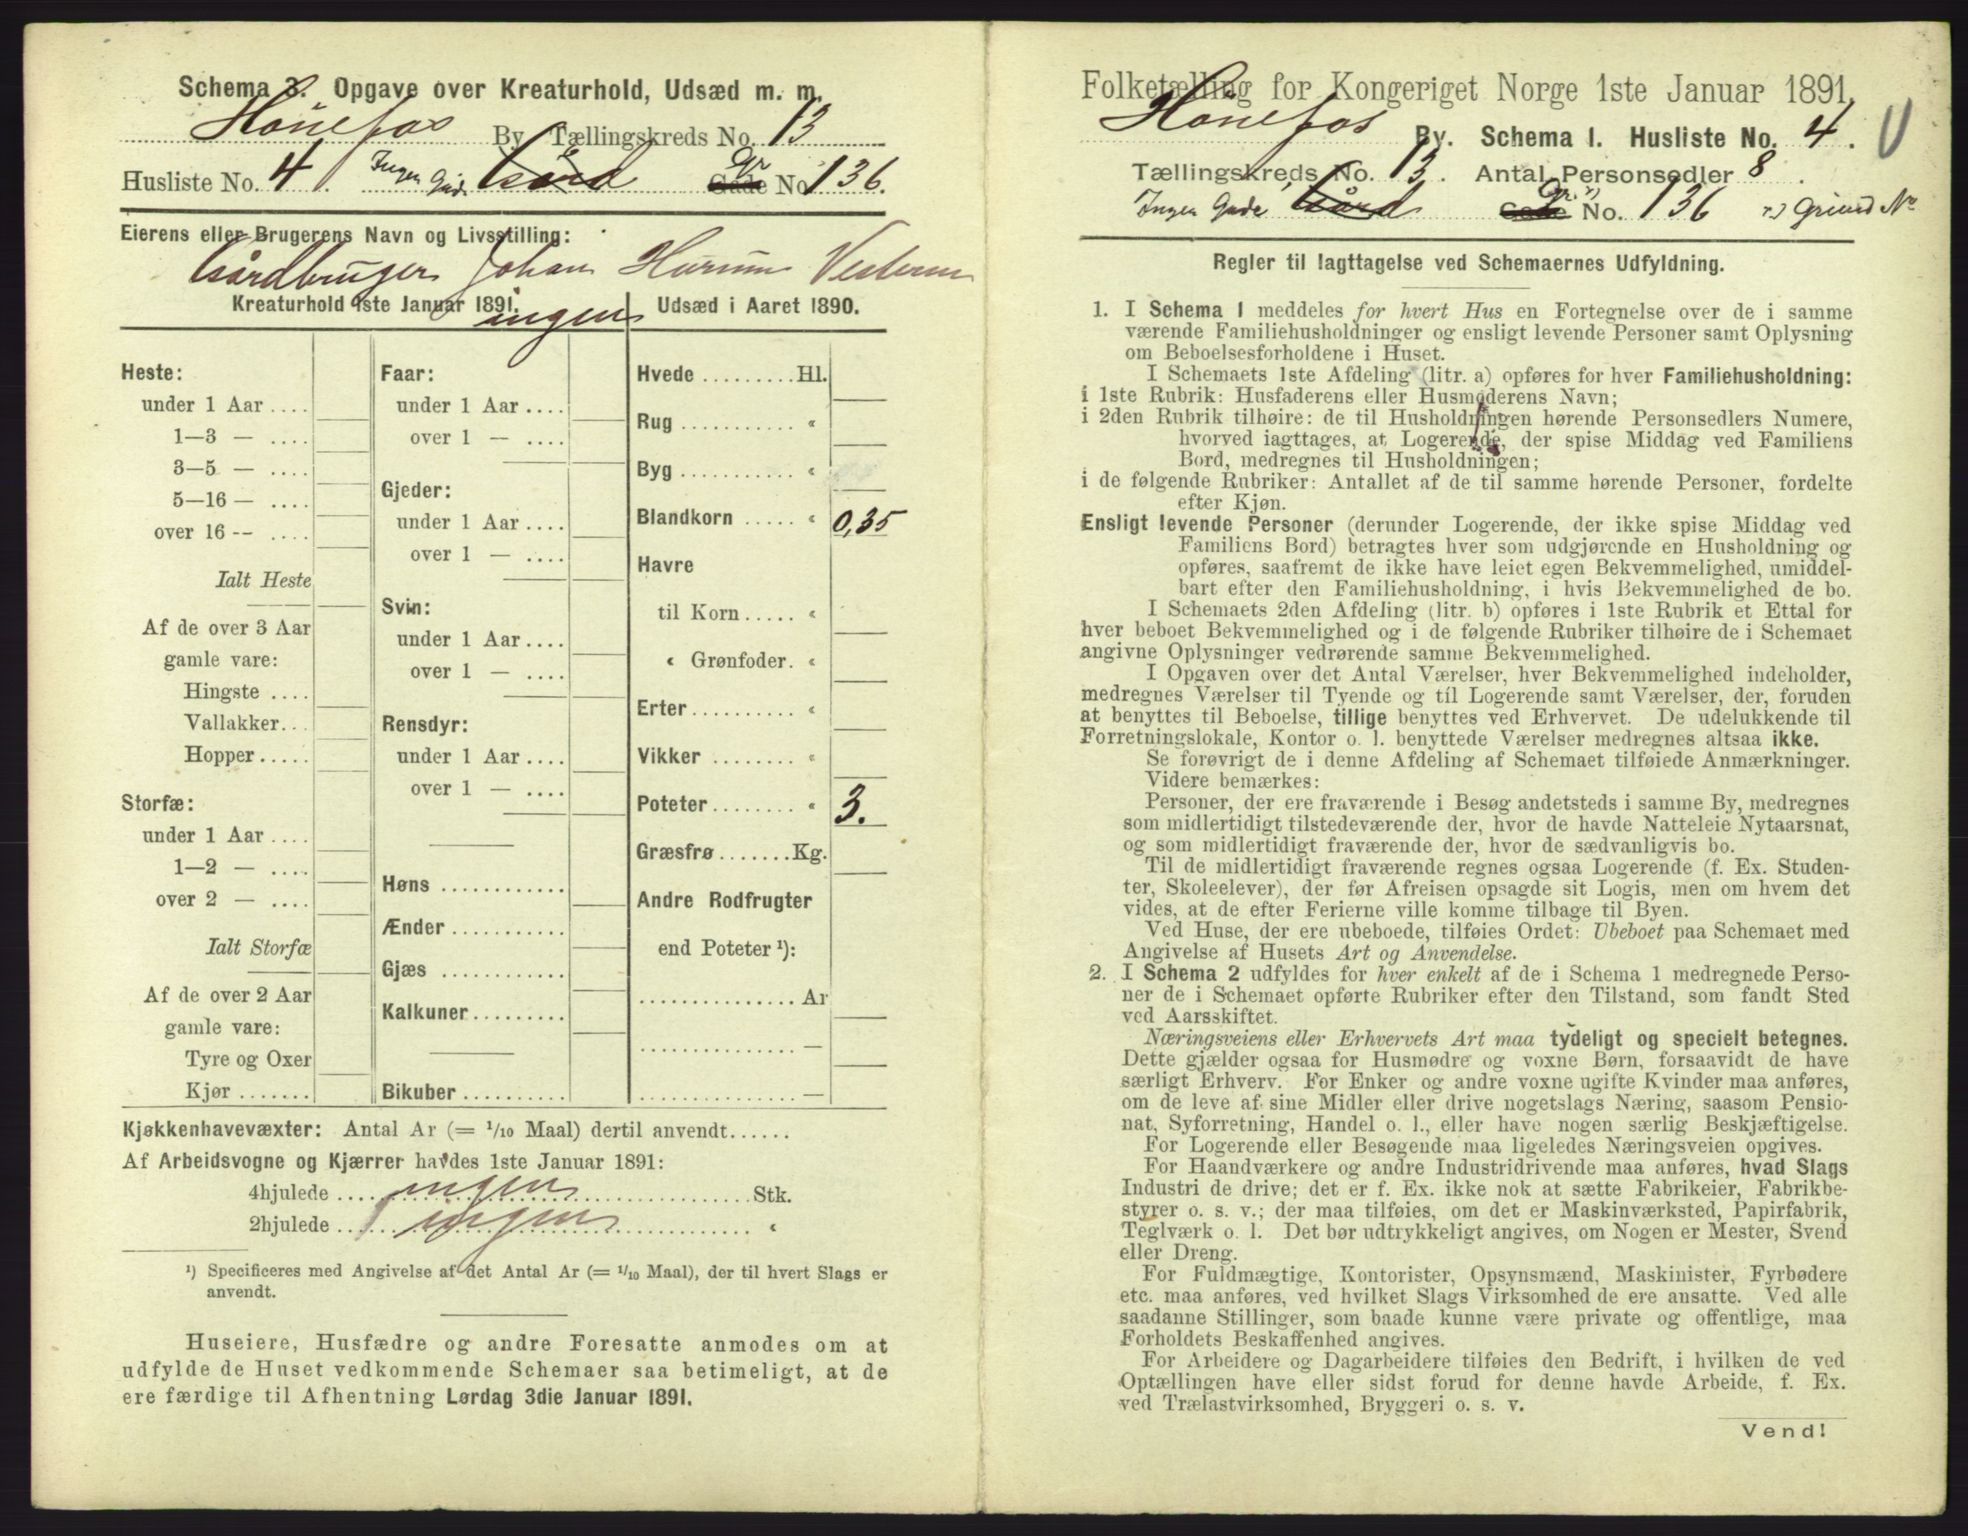 Schema 3. Opgave over Kreaturhold, Udsæd m. m.
Hönefos By Tællingskreds No. 13
Husliste No. 4 Ingen Gade Gård Gr Gade No. 136.
Eierens eller Brugerens Navn og Livsstilling:
Gårdbruger Johan Hurum Vestern
Kreaturhold 1ste Januar 1891. ingen
Heste:
under 1 Aar ....
1—3 — ....
3—5 — ....
5—16 — ....
over 16 -- ....
Ialt Heste
Af de over 3 Aar
gamle vare:
Hingste ....
Vallakker...
Hopper.....
Storfæ:
under 1 Aar ....
1—2 — ....
over 2 — ....
Ialt Storfæ
Af de over 2 Aar
gamle vare:
Tyre og Oxer
Kjør .......
Faar:
under 1 Aar ....
over 1 — ....
Gjeder:
under 1 Aar ....
over 1 — ....
Svin:
under 1 Aar ....
over 1 — ....
Rensdyr:
under 1 Aar ....
over 1 — ....
Høns ............
Ænder ...........
Gjæs ............
Kalkuner.........
Bikuber ..........
Udsæd i Aaret 1890.
Hvede .........Hl.
Rug ........... «
Byg ........... «
Blandkorn ..... « 0,35
Havre
til Korn..... «
« Grønfoder. «
Erter.......... «
Vikker ........ «
Poteter........ « 3.
Græsfrø.......Kg.
Andre Rodfrugter
end Poteter ¹):
............... Ar
............... —
............... —
Kjøkkenhavevæxter: Antal Ar (= 1/10 Maal) dertil anvendt......
Af Arbeidsvogne og Kjærrer havdes 1ste Januar 1891:
4hjulede .... ingen ....................Stk.
2hjulede .... ingen .................... «
¹) Specificeres med Angivelse af det Antal Ar (= 1/10 Maal), der til hvert Slags er
anvendt.
Huseiere, Husfædre og andre Foresatte anmodes om at
udfylde de Huset vedkommende Schemaer saa betimeligt, at de
ere færdige til Afhentning Lørdag 3die Januar 1891.
Folketælling for Kongeriget Norge 1ste Januar 1891.
Hönefos By. Schema I. Husliste No. 4.
Tællingskreds No. 13. Antal Personsedler 8.
Ingen Gade, Gård Gr. ¹) Gade No. 136 ¹) Grund No
Regler til Iagttagelse ved Schemaernes Udfyldning.
1. I Schema I meddeles for hvert Hus en Fortegnelse over de i samme
værende Familiehusholdninger og ensligt levende Personer samt Oplysning
om Beboelsesforholdene i Huset.
I Schemaets 1ste Afdeling (litr. a) opføres for hver Familiehusholdning:
i 1ste Rubrik: Husfaderens eller Husmoderens Navn;
i 2den Rubrik tilhøire: de til Husholdningen hørende Personsedlers Numere,
hvorved iagttages, at Logerende, der spise Middag ved Familiens
Bord, medregnes til Husholdningen;
i de følgende Rubriker: Antallet af de til samme hørende Personer, fordelte
efter Kjøn.
Ensligt levende Personer (derunder Logerende, der ikke spise Middag ved
Familiens Bord) betragtes hver som udgjørende en Husholdning og
opføres, saafremt de ikke have leiet egen Bekvemmelighed, umiddel-
bart efter den Familiehusholdning, i hvis Bekvemmelighed de bo.
I Schemaets 2den Afdeling (litr. b) opføres i 1ste Rubrik et Ettal for
hver beboet Bekvemmelighed og i de følgende Rubriker tilhøire de i Schemaet
angivne Oplysninger vedrørende samme Bekvemmelighed.
I Opgaven over det Antal Værelser, hver Bekvemmelighed indeholder,
medregnes Værelser til Tyende og til Logerende samt Værelser, der, foruden
at benyttes til Beboelse, tillige benyttes ved Erhvervet. De udelukkende til
Forretningslokale, Kontor o. l. benyttede Værelser medregnes altsaa ikke.
Se forøvrigt de i denne Afdeling af Schemaet tilføiede Anmærkninger.
Videre bemærkes:
Personer, der ere fraværende i Besøg andetsteds i samme By, medregnes
som midlertidigt tilstedeværende der, hvor de havde Natteleie Nytaarsnat,
og som midlertidigt fraværende der, hvor de sædvanligvis bo.
Til de midlertidigt fraværende regnes ogsaa Logerende (f. Ex. Studen-
ter, Skoleelever), der før Afreisen opsagde sit Logis, men om hvem det
vides, at de efter Ferierne ville komme tilbage til Byen.
Ved Huse, der ere ubeboede, tilføies Ordet: Ubeboet paa Schemaet med
Angivelse af Husets Art og Anvendelse.
2. I Schema 2 udfyldes for hver enkelt af de i Schema 1 medregnede Perso-
ner de i Schemaet opførte Rubriker efter den Tilstand, som fandt Sted
ved Aarsskiftet.
Næringsveiens eller Erhvervets Art maa tydeligt og specielt betegnes.
Dette gjælder ogsaa for Husmødre og voxne Børn, forsaavidt de have
særligt Erhverv. For Enker og andre voxne ugifte Kvinder maa anføres,
om de leve af sine Midler eller drive nogetslags Næring, saasom Pensio-
nat, Syforretning, Handel o. l., eller have nogen særlig Beskjæftigelse.
For Logerende eller Besøgende maa ligeledes Næringsveien opgives.
For Haandværkere og andre Industridrivende maa anføres, hvad Slags
Industri de drive; det er f. Ex. ikke nok at sætte Fabrikeier, Fabrikbe-
styrer o. s. v.; der maa tilføies, om det er Maskinværksted, Papirfabrik,
Teglværk o. l. Det bør udtrykkeligt angives, om Nogen er Mester, Svend
eller Dreng.
For Fuldmægtige, Kontorister, Opsynsmænd, Maskinister, Fyrbødere
etc. maa anføres, ved hvilket Slags Virksomhed de ere ansatte. Ved alle
saadanne Stillinger, som baade kunne være private og offentlige, maa
Forholdets Beskaffenhed angives.
For Arbeidere og Dagarbeidere tilføies den Bedrift, i hvilken de ved
Optællingen have eller sidst forud for denne havde Arbeide, f. Ex.
ved Trælastvirksomhed, Bryggeri o. s. v.
Vend!